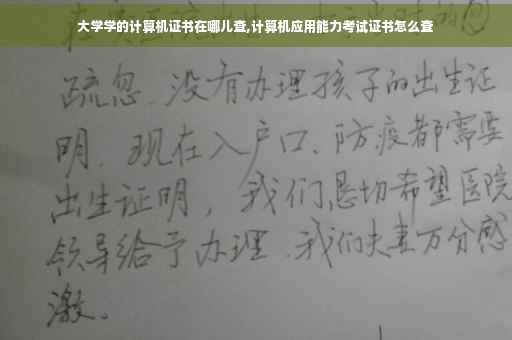 大学学的计算机证书在哪儿查,计算机应用能力考试证书怎么查
疏忽、没有办理孩子的出生证
明、现在入户口、防疫都需要
出生证明，我们恳切希望医院
领导给予办理、我们夫妻万分感
激。